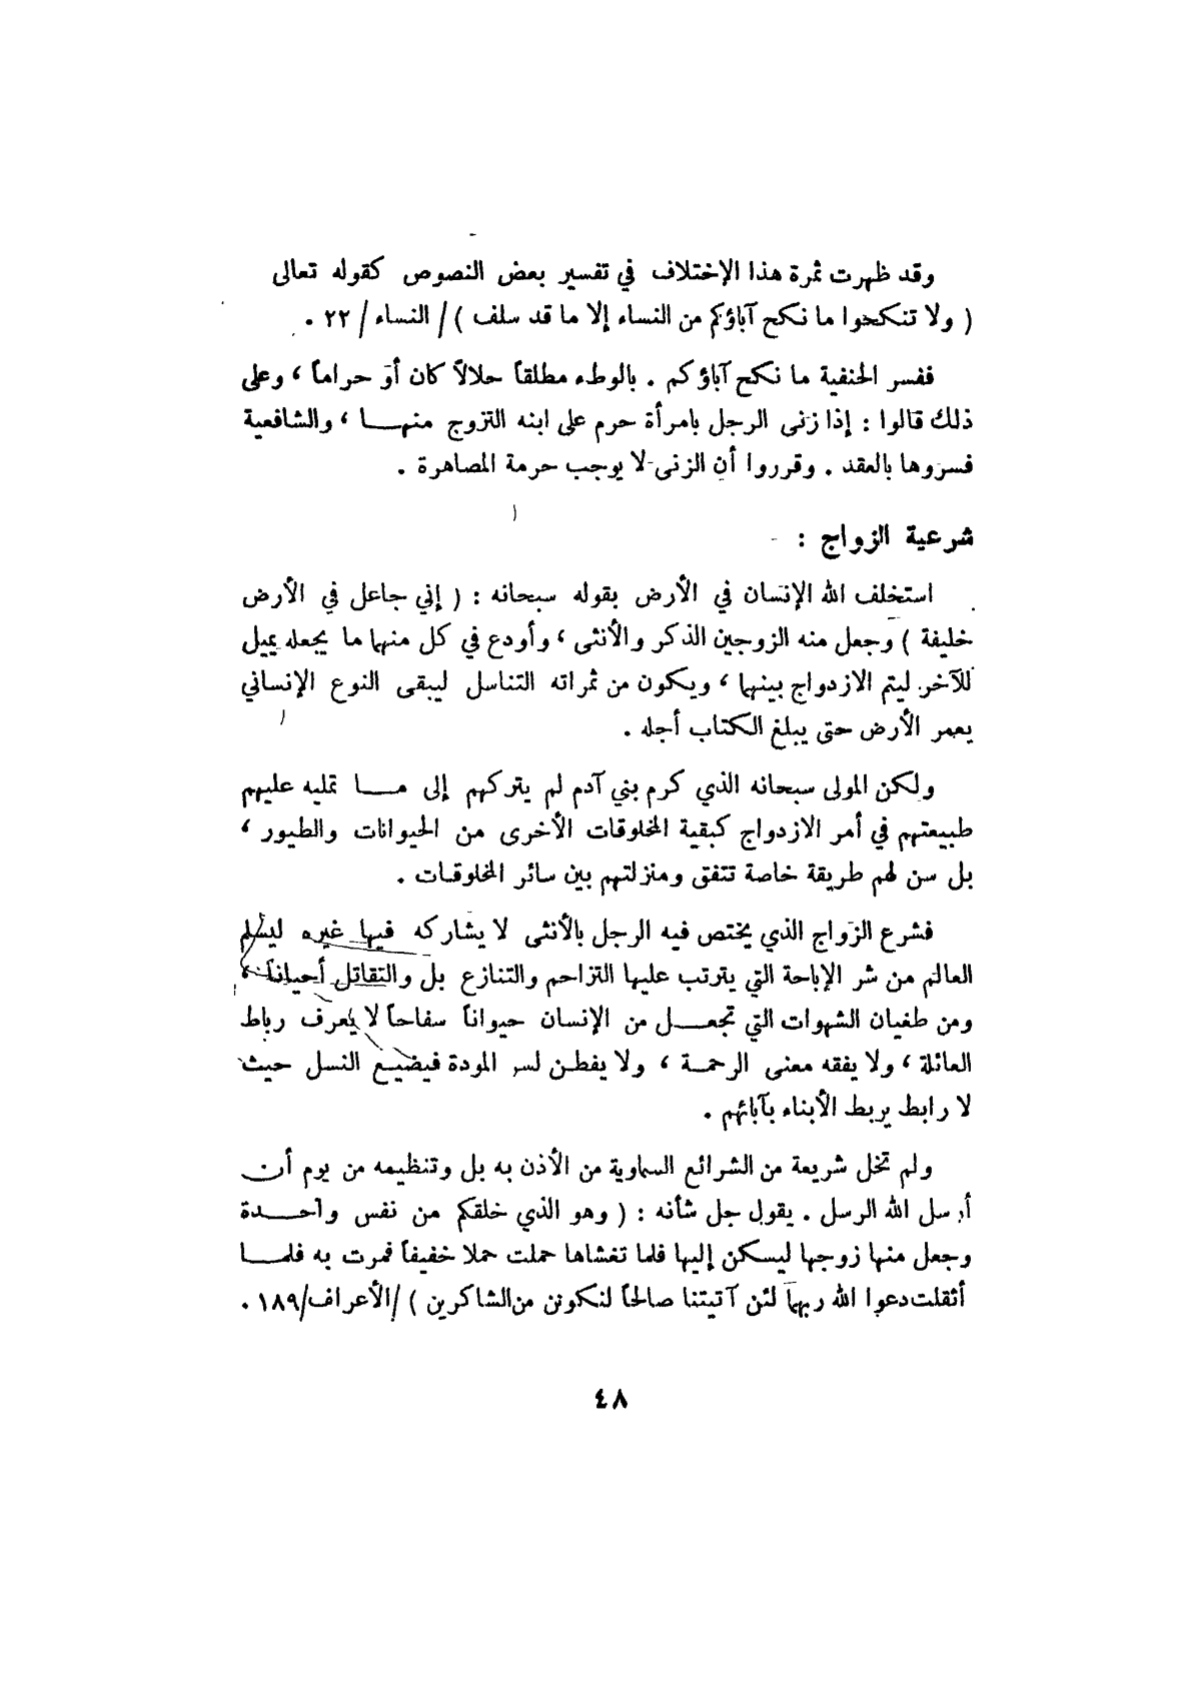 وقد ظهرت ثمرة هذا الإختلاف في تفسير بعض النصوص كقوله تعالى
( ولا تنكحوا ما نكح آباؤكم من النساء إلا ما قد سلف ) / النساء / ٢٢ .
ففسر الحنفية ما نكح آباؤكم . بالوطء مطلقاً حلالاً كان أو حراماً ، وعلى
ذلك قالوا : إذا زنى الرجل بامرأة حرم على ابنه التزوج منهـا ، والشافعية
فسروها بالعقد . وقرروا أن الزنى لا يوجب حرمة المصاهرة .
شرعية الزواج :
استخلف الله الإنسان في الأرض بقوله سبحانه : ( إني جاعل في الأرض
خليفة ) وجعل منه الزوجين الذكر والأنثى ، وأودع في كل منهما ما يجعله يميل
للآخر ليتم الازدواج بينهما ، ويكون من ثمراته التناسل ليبقى النوع الإنساني
يعمر الأرض حتى يبلغ الكتاب أجله .
ولكن المولى سبحانه الذي كرم بني آدم لم يتركهم إلى مـا تمليه عليهم
طبيعتهم في أمر الازدواج كبقية المخلوقات الأخرى من الحيوانات والطيور ،
بل سن لهم طريقة خاصة تتفق ومنزلتهم بين سائر المخلوقات .
فشرع الزواج الذي يختص فيه الرجل بالأنثى لا يشاركه فيها غيره ليسلم
العالم من شر الإباحة التي يترتب عليها التزاحم والتنازع بل والتقاتل أحياناً ،
ومن طغيان الشهوات التي تجعـل من الإنسان حيواناً سفاحاً لا يعرف رباط
العائلة ، ولا يفقه معنى الرحمـة ، ولا يفطن لسر المودة فيضيـع النسل حيث
لا رابط يربط الأبناء بآبائهم .
ولم تخل شريعة من الشرائع السماوية من الأذن به بل وتنظيمه من يوم أن
أرسل الله الرسل . يقول جل شأنه : ( وهو الذي خلقكم من نفس واحـدة
وجعل منها زوجها ليسكن إليها فلما تغشاها حملت حملا خفيفاً فمرت به فلمـا
أثقلت دعوا الله ربهما لئن آتيتنا صالحاً لنكونن من الشاكرين ) /الأعراف/١٨٩ .
٤٨